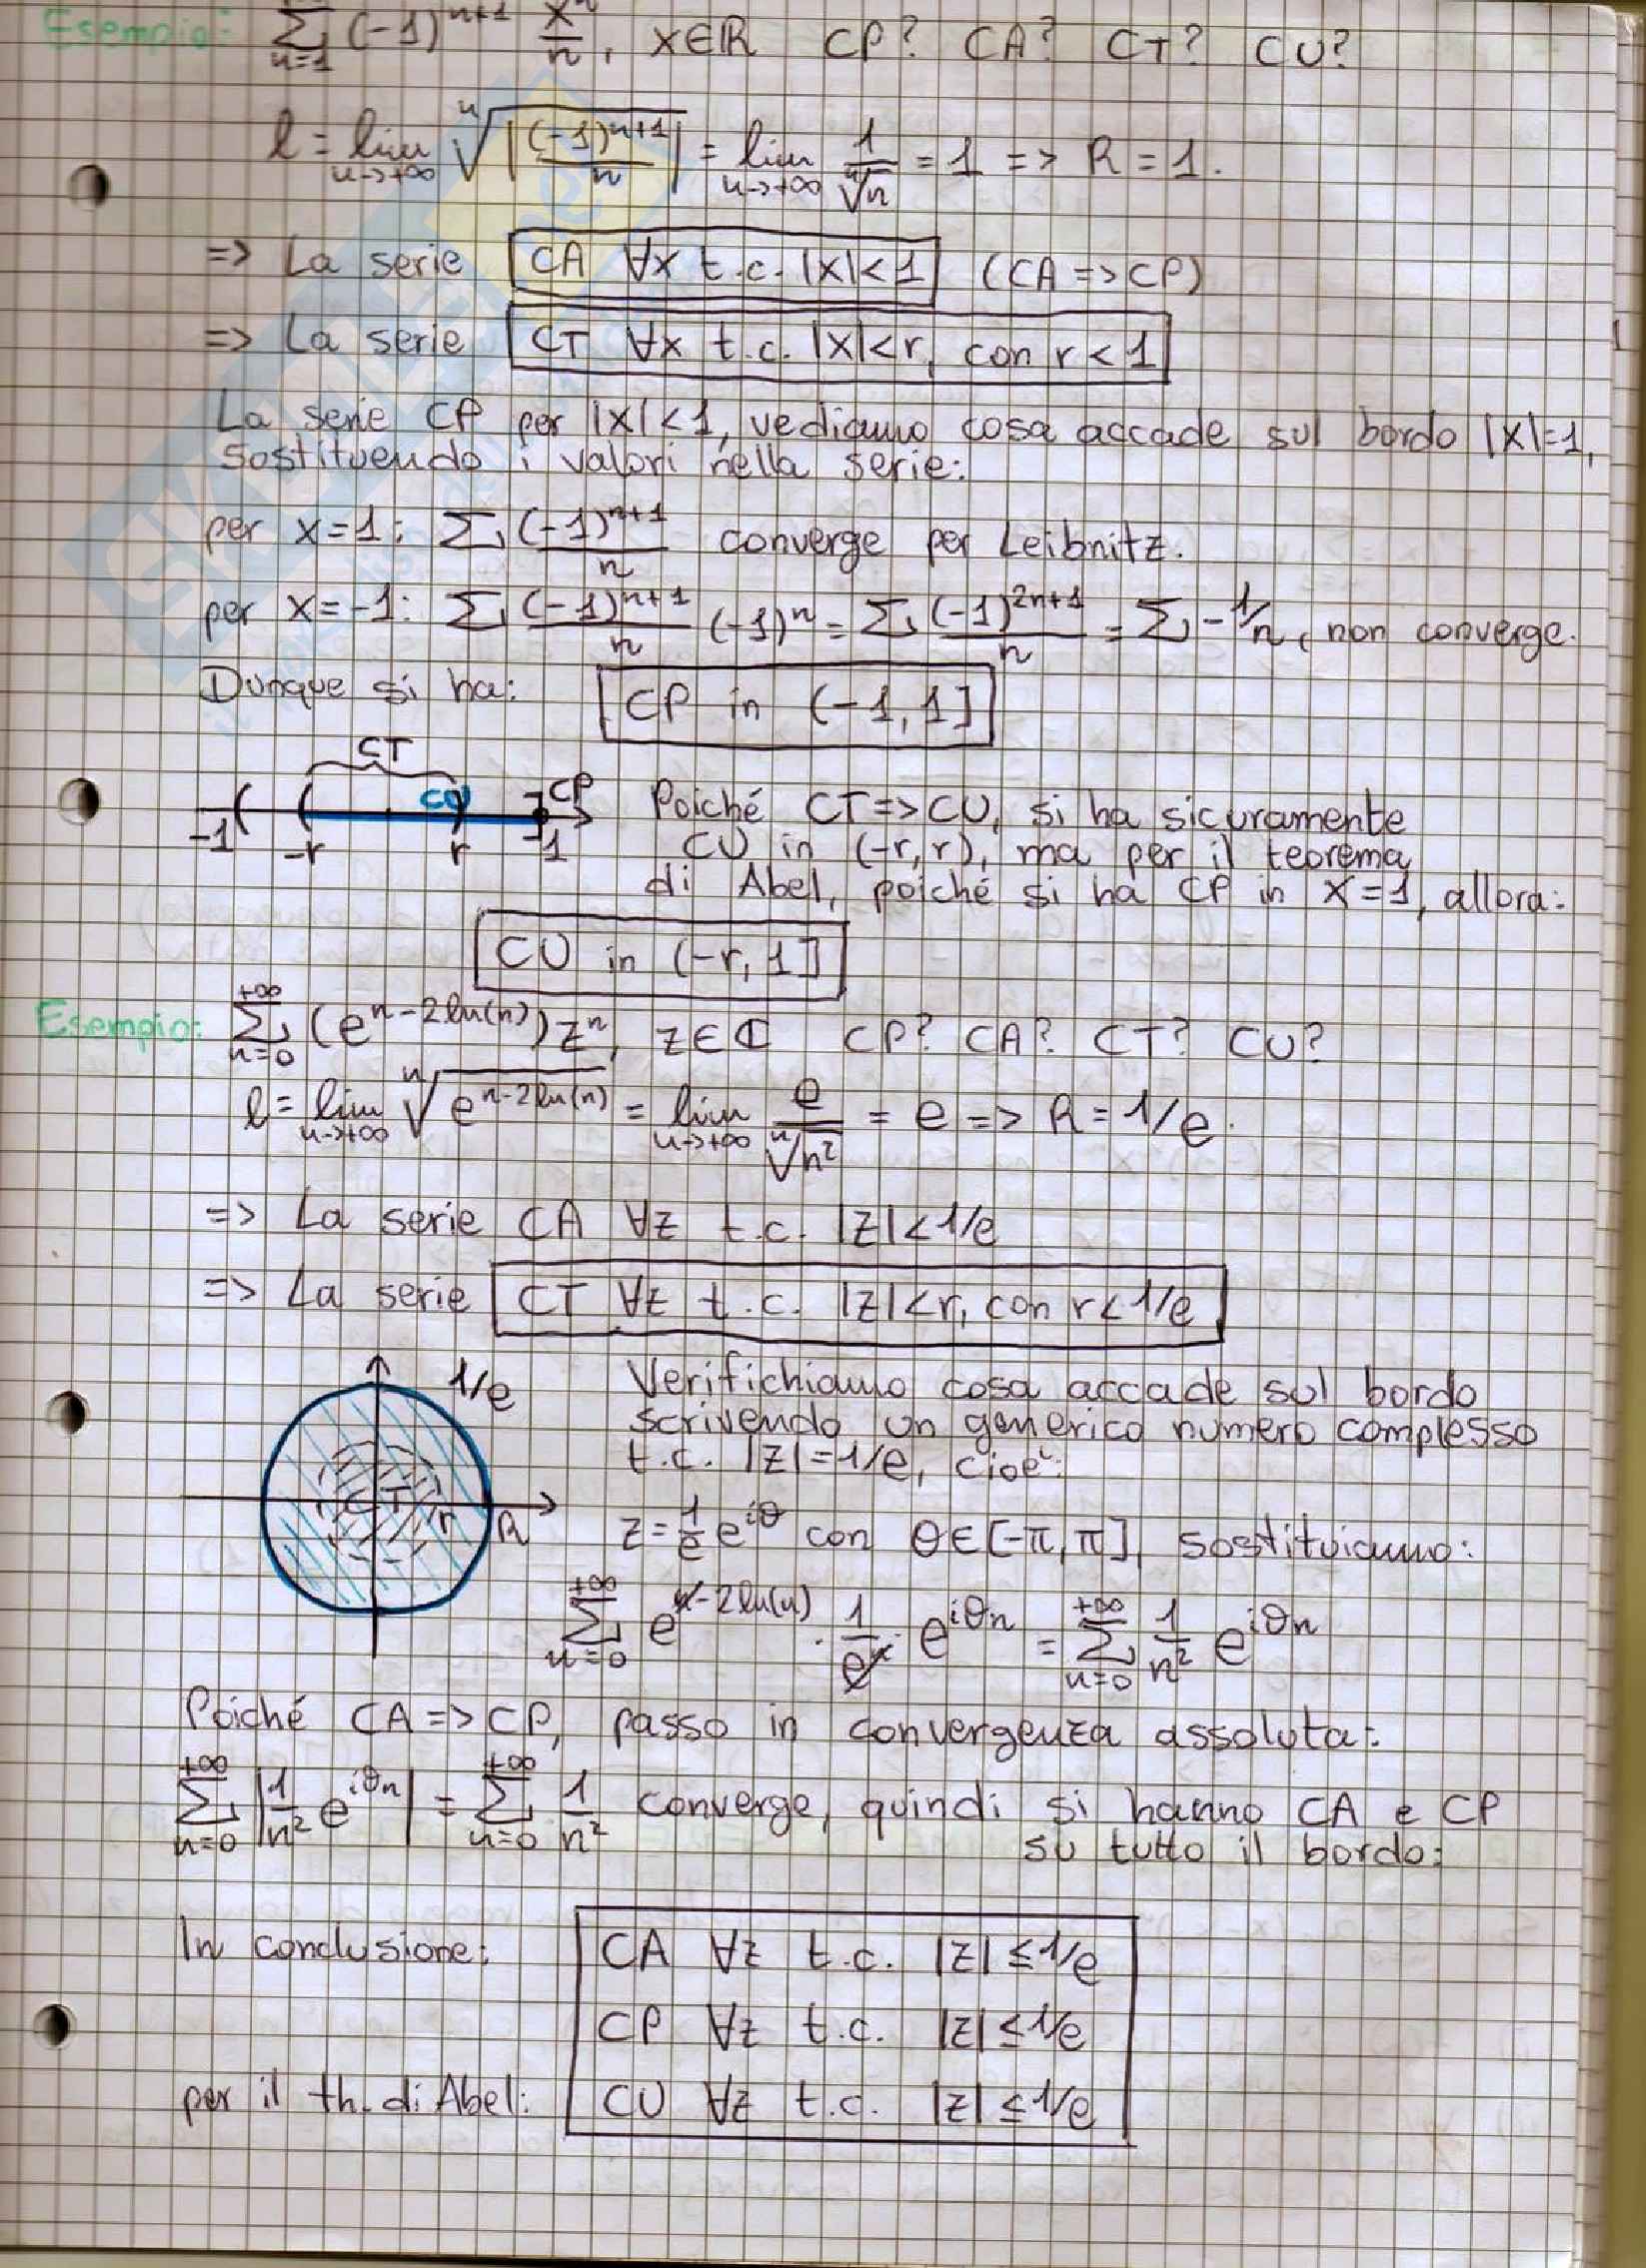 Esempio: ∑_{n=1} (-1)^{n+1} x^n/n, x∈ℝ CP? CA? CT? CU?
l = lim_{n→+∞} ⁿ√|(-1)^{n+1}/n| = lim_{n→+∞} 1/ⁿ√n = 1 => R = 1.
=> La serie CA ∀x t.c. |x|<1 (CA => CP)
=> La serie CT ∀x t.c. |x|<r, con r<1
La serie CP per |x|<1, vediamo cosa accade sul bordo |x|=1,
sostituendo i valori nella serie:
per x=1: ∑ (-1)^{n+1}/n converge per Leibnitz.
per x=-1: ∑ (-1)^{n+1}/n (-1)^n = ∑ (-1)^{2n+1}/n = ∑ -1/n, non converge.
Dunque si ha: CP in (-1,1]
CT
CU CP
-1 -r r 1
Poiché CT=>CU, si ha sicuramente
CU in (-r,r), ma per il teorema
di Abel, poiché si ha CP in x=1, allora:
CU in (-r,1]
Esempio: ∑_{n=0}^{+∞} (e^{n-2ln(n)}) z^n, z∈ℂ CP? CA? CT? CU?
l = lim_{n→+∞} ⁿ√e^{n-2ln(n)} = lim_{n→+∞} e/ⁿ√n² = e => R = 1/e.
=> La serie CA ∀z t.c. |z|<1/e
=> La serie CT ∀z t.c. |z|<r, con r<1/e
1/e
CT
r R
Verifichiamo cosa accade sul bordo
scrivendo un generico numero complesso
t.c. |z|=1/e, cioè:
z = 1/e e^{iθ} con θ∈[-π,π], sostituiamo:
∑_{n=0}^{+∞} e^{n-2ln(n)} · 1/e^n · e^{iθn} = ∑_{n=0}^{+∞} 1/n² e^{iθn}
Poiché CA=>CP, passo in convergenza assoluta:
∑_{n=0}^{+∞} |1/n² e^{iθn}| = ∑_{n=0}^{+∞} 1/n² converge, quindi si hanno CA e CP
su tutto il bordo:
In conclusione: CA ∀z t.c. |z| ≤ 1/e
CP ∀z t.c. |z| ≤ 1/e
per il th. di Abel: CU ∀z t.c. |z| ≤ 1/e